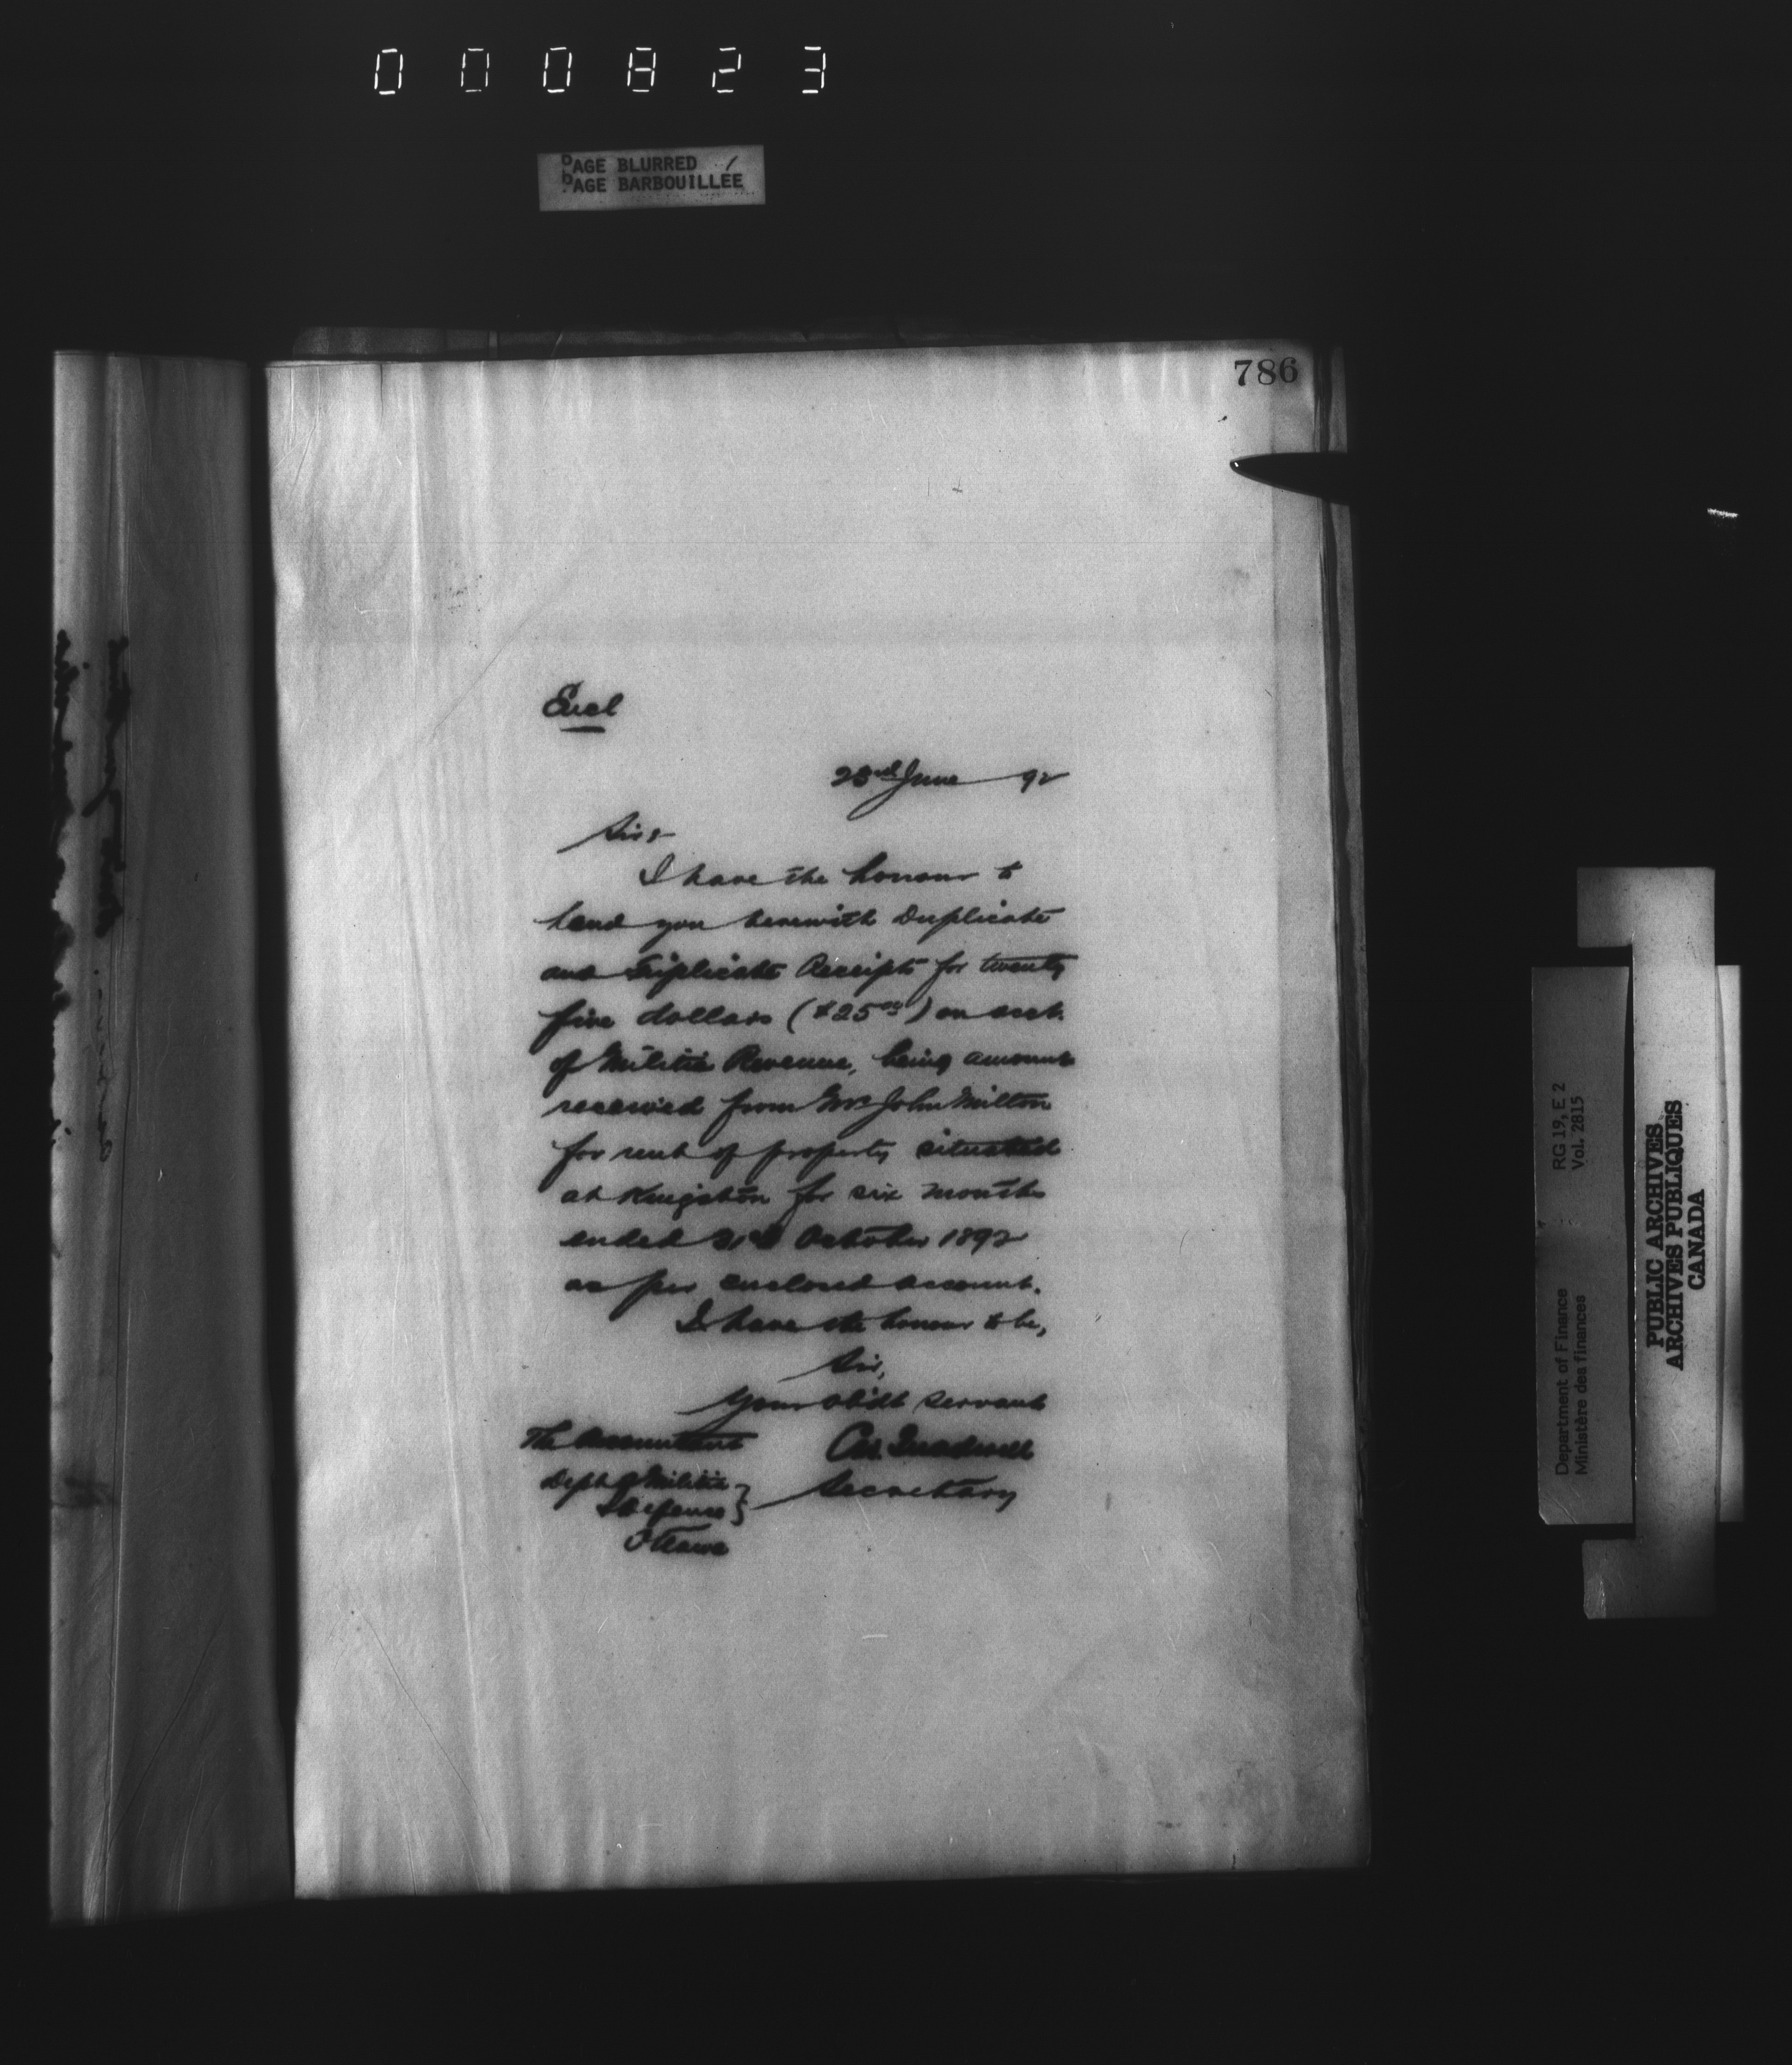 000823
PAGE BLURRED
PAGE BARBOUILLÉE
786
Encl
23rd June 92
Sir:-
I have the honour to
hand you herewith Duplicate
and Triplicate Receipts for twenty
five dollars ($25.00) on acct.
of Militia Revenue, being amount
received from Mr John Milton
for rent of property situated
at Kingston for six months
ended 31st October 1892
as per enclosed account.
I have the honour to be,
Sir,
Your obdt servant
The Accountant
Dept of Militia
& Defence
Ottawa
Secretary
RG 19, E 2
Vol. 2815
Department of Finance
Ministère des finances
PUBLIC ARCHIVES
ARCHIVES PUBLIQUES
CANADA